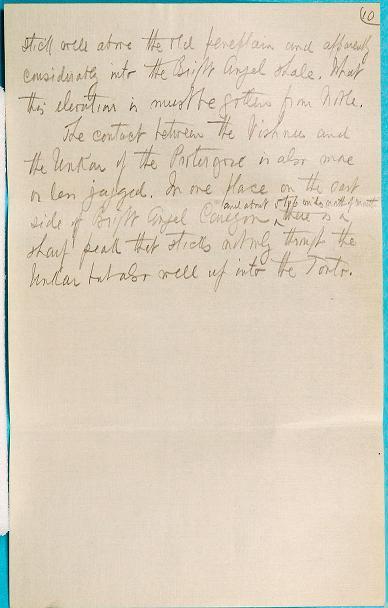 10
stick well above the old peneplain and apparently
considerably into the Bright Angel shale. What
this elevation is must be gotten from Noble.
The contact between the Vishnu and
the Unkar of the Proterozoic is also more
or less jagged. In one place on the east
and about 5 to 6 miles north of mouth
side of Bright Angel Canyon, there is a
sharp peak that sticks not only through the
Unkar but also well up into the Tonto.